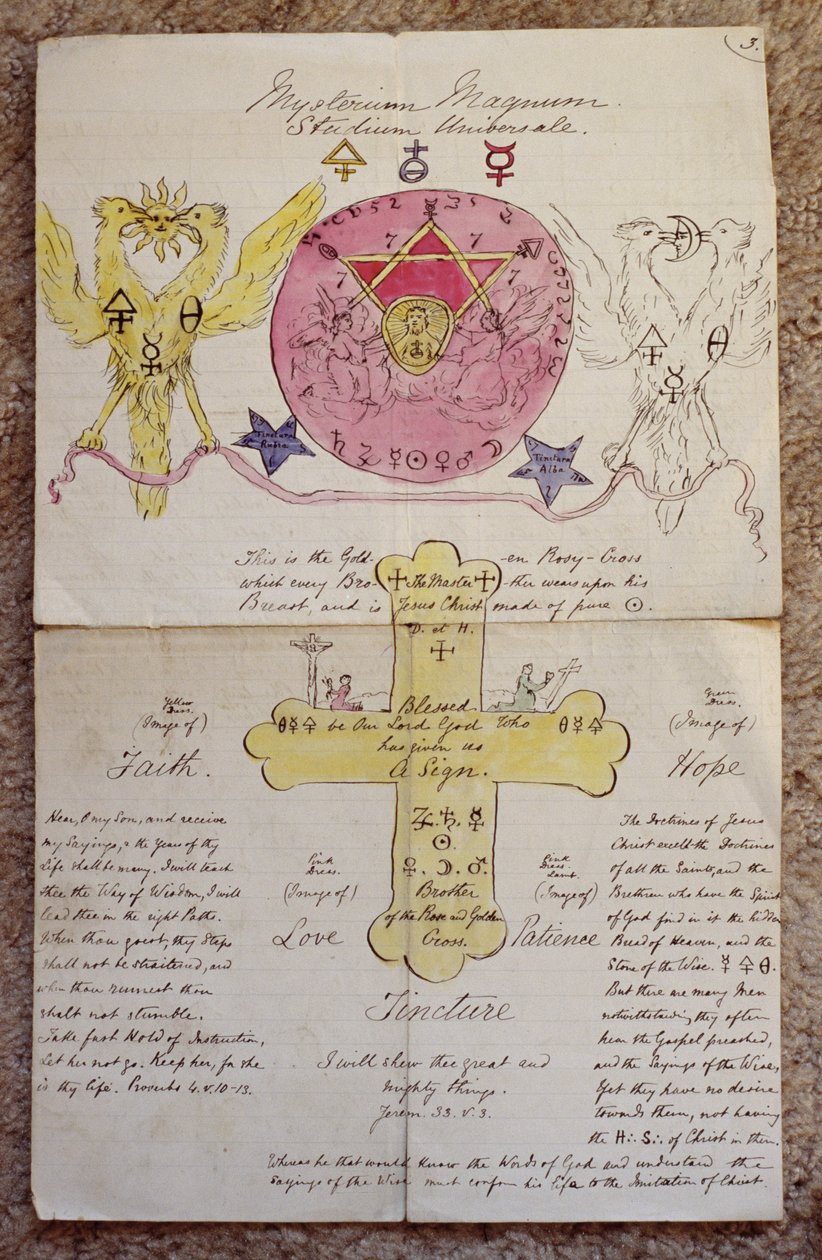 3.
Mysterium Magnum.
Studium Universale.
7 7
7 7
Tinctura
Rubra
Tinctura
Alba
This is the Gold- -en Rosy-Cross
which every Bro- -ther wears upon his
Breast, and is made of pure ☉.
The Master
Jesus Christ
D. et H.
Blessed
be Our Lord God Who
has given us
A Sign.
♃. ♄. ☿
☉.
♀. ☽. ♂.
Brother
of the Rose and Golden
Cross.
Yellow
Dress.
(Image of)
Faith.
Green
Dress.
(Image of)
Hope
Pink
Dress.
(Image of)
Love
Pink
Dress.
Lamb.
(Image of)
Patience
Hear, O my Son, and receive
my Sayings, & the Years of thy
Life shall be many. I will teach
thee the Way of Wisdom, I will
lead thee in the right Paths.
When thou goest, thy Steps
shall not be straitened, and
when thou runnest thou
shalt not stumble.
Take fast Hold of Instruction,
Let her not go. Keep her, for she
is thy life. Proverbs 4. v. 10-13.
Tincture
I will shew thee great and
mighty things.
Jerem. 33. v. 3.
The Doctrines of Jesus
Christ excell the Doctrines
of all the Saints, and the
Brethren who have the Spirit
of God find in it the hidden
Bread of Heaven, and the
Stone of the Wise. ☿ 🜍 🜔.
But there are many Men
notwithstanding they often
hear the Gospel preached,
and the Sayings of the Wise,
Yet they have no desire
towards them, not having
the H:. S:. of Christ in them.
Whereas he that would know the Words of God and understand the
Sayings of the Wise must conform his life to the Imitation of Christ.